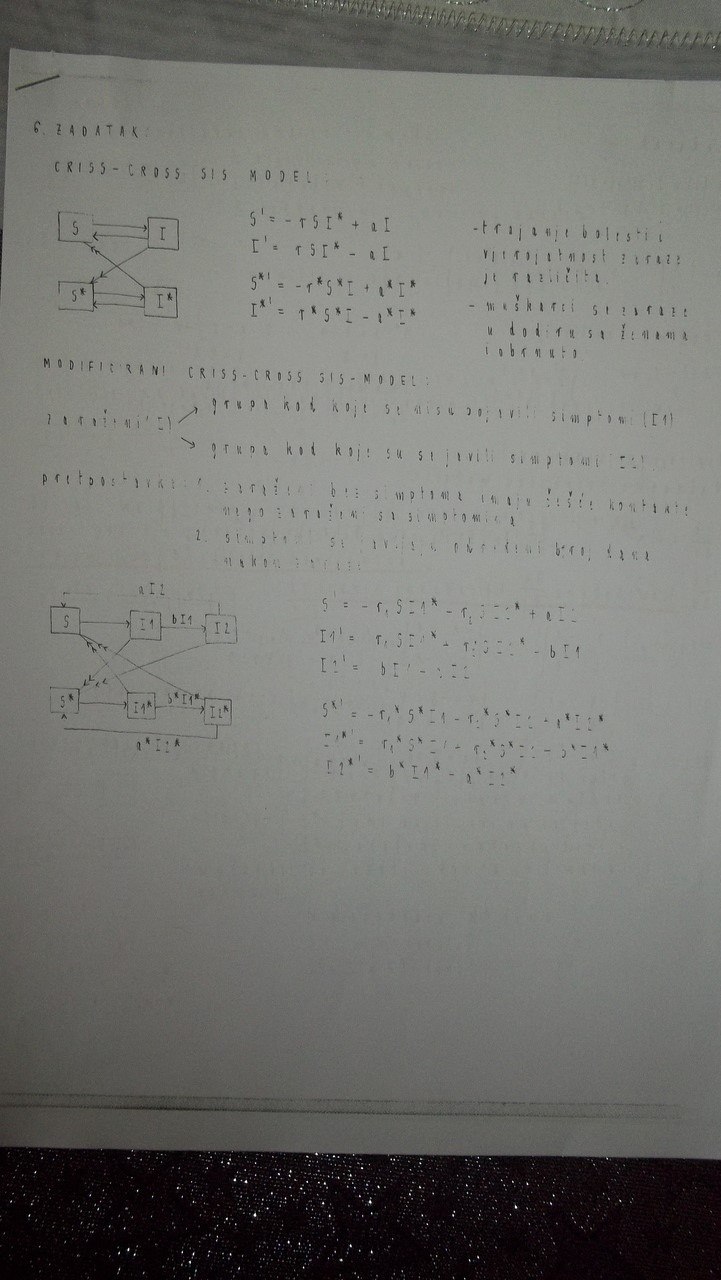 6. ZADATAK:
CRISS-CROSS SIS MODEL:
S I
S* I*
S' = -rSI* + aI
I' = rSI* - aI
S*' = -r*S*I + a*I*
I*' = r*S*I - a*I*
-trajanje bolesti i
vjerojatnost zaraze
je različita.
- muškarci se zaraze
u dodiru sa ženama
i obrnuto
MODIFICIRANI CRISS-CROSS SIS-MODEL:
zaraženi(I)
grupa kod koje se nisu pojavili simptomi (I1)
grupa kod koje su se javili simptomi (I2).
pretpostavke: 1. zaraženi bez simptoma imaju češće kontakte
nego zaraženi sa simptomima
2. simptomi se javljaju određeni broj dana
nakon zaraze
aI2
S I1 bI1 I2
S* I1* b*I1* I2*
a*I2*
S' = -r₁SI1* - r₂SI2* + aI2
I1' = r₁SI1* r₂SI2* - bI1
I2' = bI1 - aI2
S*' = -r₁*S*I1 - r₂*S*I2 + a*I2*
I1*' = r₁*S*I1 + r₂*S*I2 - b*I1*
I2*' = b*I1* - a*I2*